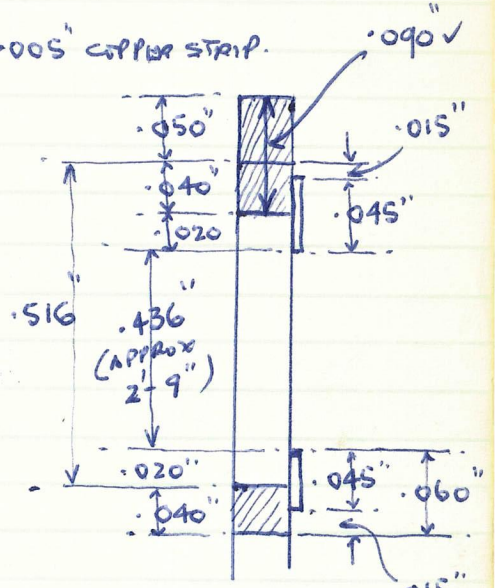 .005" COPPER STRIP.
.090" ✓
.050"
.015"
.040"
.045"
.020
.516"
.436"
(APPROX
2'-9")
.020"
.045"
.060"
.040"